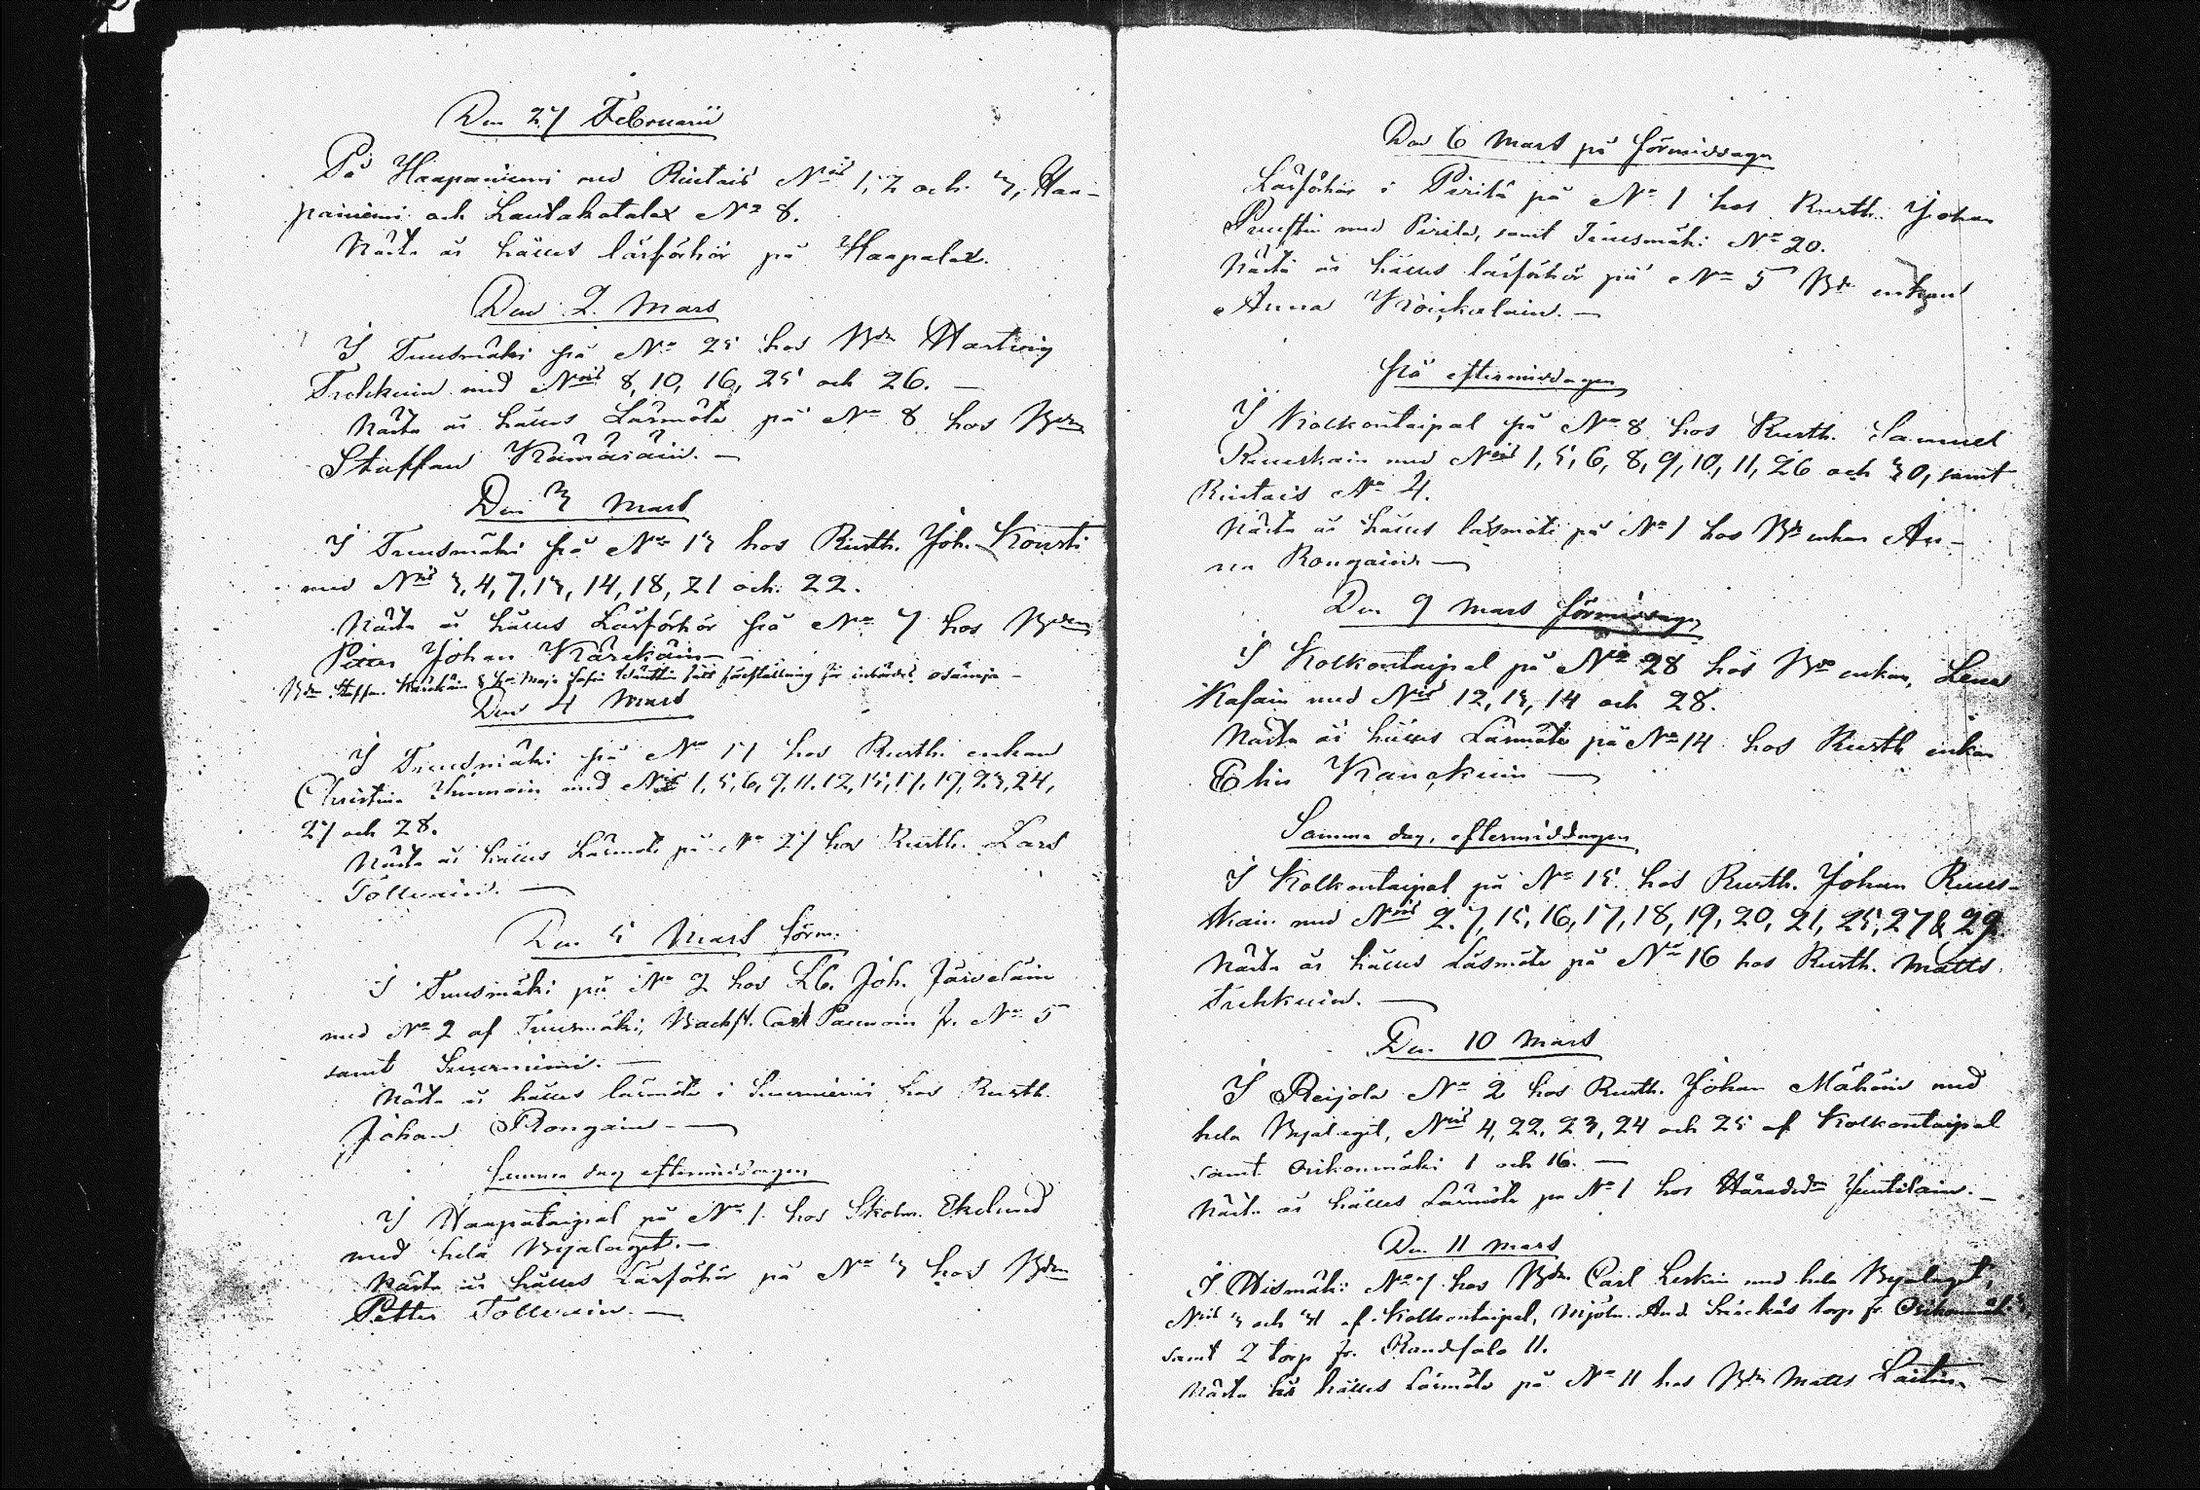 Den 27 Februarii
På Haapaniemi med Rintais N:ris 1, 2 och 3, Haa-
painiemi och Lautakotalax N:o 8.
Nästa år hålles läsförhör på Haapalax.
Den 2. Mars
I Tuusmäki på N:o 25 hos Bdn Hartwig
Tschkuin med N:ris 8, 10, 16, 25 och 26. —
Nästa år hålles Läsmöte på N:o 8 hos Bdn
Staffan Kämäräin. —
Den 3 Mars
I Tuusmäki på N:o 13 hos Rusth. Joh. Kousti
med N:ris 3, 4, 7, 13, 14, 18, 21 och 22.
Nästa år hålles Läsförhör på N:o 7 hos Bdn
Petter Johan Kärckäin —
Bdn Staffan Kärckäin & h:u Maja Sofia fått föreställning för inbördes osämja —
Den 4 Mars
I Tuusmäki på N:o 17 hos Rusth. enkan
Christina Immoin med N:ris 1, 5, 6, 9, 11, 12, 15, 17, 19, 23, 24,
27 och 28.
Nästa år hålles Läsmöte på N:o 27 hos Rusth. Lars
Tollvain. —
Den 5 Mars förm.
I Tuusmäki på N:o 2 hos Lb. Joh. Järveläin
med N:o 2 af Tuusmäki, Backst. Carl Paunoin fr. N:o 5
samt Suurniemi. —
Nästa år hålles läsmöte i Suurniemi hos Rusth.
Johan Rongain —
Samma dag eftermiddagen
I Haapataipal på N:o 1 hos Skolm. Ekelund
med hela Byalaget. —
Nästa år hålles Läsförhör på N:o 3 hos Bdn
Petter Tollvain. —
Den 6 Mars på förmiddagen
Läsförhör i Pirilä på N:o 1 hos Rusth. Johan
med Pirilä, samt Tuusmäki N:o 20.
Nästa år hålles läsförhör på N:o 5 Bde enkan
Anna Kröickalain. —
På eftermiddagen
I Kolkontaipal på N:o 8 hos Rusth. Samuel
Ruuskain med N:ris 1, 5, 6, 8, 9, 10, 11, 26 och 30, samt
Rintais N:o 4.
Nästa år hålles läsmöte på N:o 1 hos Bde enkan An-
na Rongain —
Den 9 Mars förmiddagen
I Kolkontaipal på N:o 28 hos Bde enkan Lena
Kasain med N:ris 12, 13, 14 och 28.
Nästa år hålles Läsmöte på N:o 14 hos Rusth enkan
Elin Kauckuin —
Samma dag, eftermiddagen
I Kolkontaipal på N:o 15 hos Rusth. Johan Ruus-
kain med N:ris 2, 7, 15, 16, 17, 18, 19, 20, 21, 25, 27 & 29.
Nästa år hålles Läsmöte på N:o 16 hos Rusth. Matts
Tschkuin. —
Den 10 Mars
I Reijola N:o 2 hos Rusth. Johan Mähöin med
hela Byalaget, N:ris 4, 22, 23, 24 och 25 af Kolkontaipal
samt Orikonmäki 1 och 16. —
Nästa år hålles Läsmöte på N:o 1 hos Häradsdn Juutilain. —
Den 11 Mars
I Wismäki N:o 7 hos Bdn Carl Leskin med hela Byalaget,
N:ris 3 och 31 af Kolkontaipal, Mjöln. And. torp fr. Orikonmäki 3,
samt 2 torp fr. Randsalo 11.
Nästa år hålles Läsmöte på N:o 11 hos Bdn Matts Laitin —